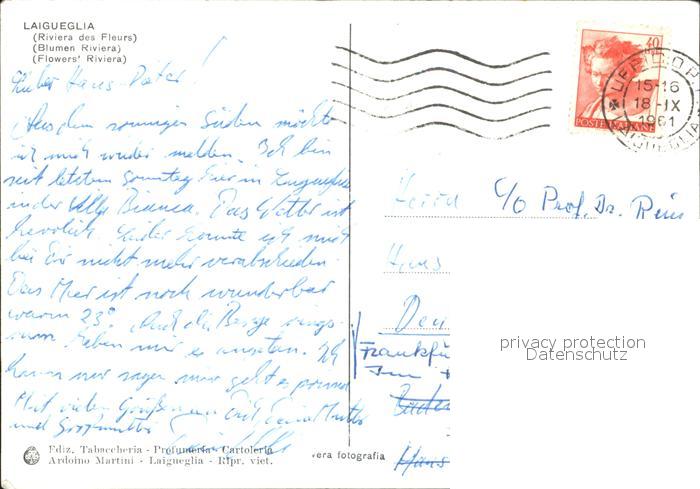 LAIGUEGLIA
(Riviera des Fleurs)
(Blumen Riviera)
(Flowers' Riviera)
Lieber Hans-Dieter!
Aus dem sonnigen Süden möchte
ich mich wieder melden. Ich bin
seit letztem Sonntag hier in Laigueglia
in der Villa Bianca. Das Wetter ist
herrlich. Leider konnte ich mich
bei Dir nicht mehr verabschieden.
Das Meer ist noch wunderbar
warm 23° Auch die Berge rings-
rum haben mir es angetan. Ich
kann nur sagen mir geht es prima
Mit vielen Grüßen an Dich, Deine Mutter
und Großmutter
Ediz. Tabaccheria - Profumeria - Cartoleria
Ardoino Martini - Laigueglia - Ripr. viet.
vera fotografia
40
POSTE ITALIANE
15-16
18-IX
1961
LAIGUEGLIA
Herrn c/o Prof. Dr.
Hans
Frankfu
Im
Hans
privacy protection
Datenschutz